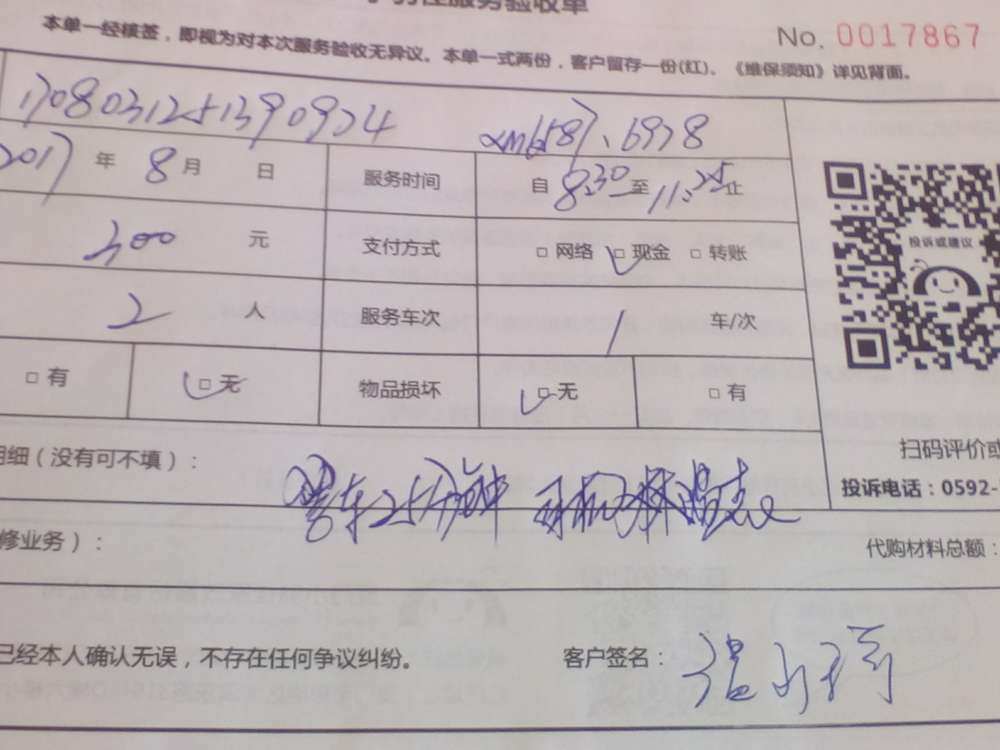 服务验收单
No. 0017867
本单一经核签，即视为对本次服务验收无异议。本单一式两份，客户留存一份(红)。《维保须知》详见背面。
1708031251390924 xm6587、6978
2017 年 8 月 日 服务时间 自 8:30 至 11:25 止
300 元 支付方式 □ 网络 □ 现金 □ 转账
投诉或建议
2 人 服务车次 1 车/次
□ 有 □ 无 物品损坏 □ 无 □ 有
明细（没有可不填）：
扫码评价或
25分钟
投诉电话：0592-
修业务）：
代购材料总额：
已经本人确认无误，不存在任何争议纠纷。 客户签名：